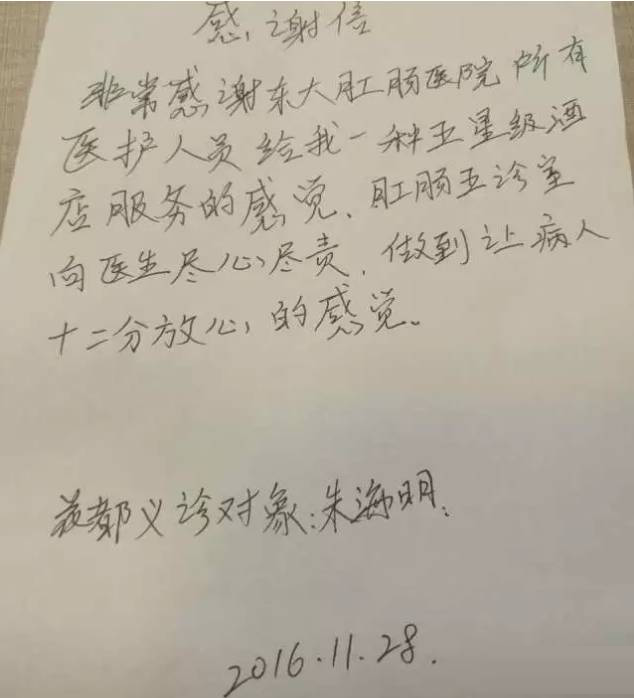 感谢信
非常感谢东大肛肠医院所有
医护人员给我一种五星级酒
店服务的感觉、肛肠五诊室
向医生尽心尽责,做到让病人
十二分放心的感觉。
花都义诊对象:朱海明.
2016.11.28.